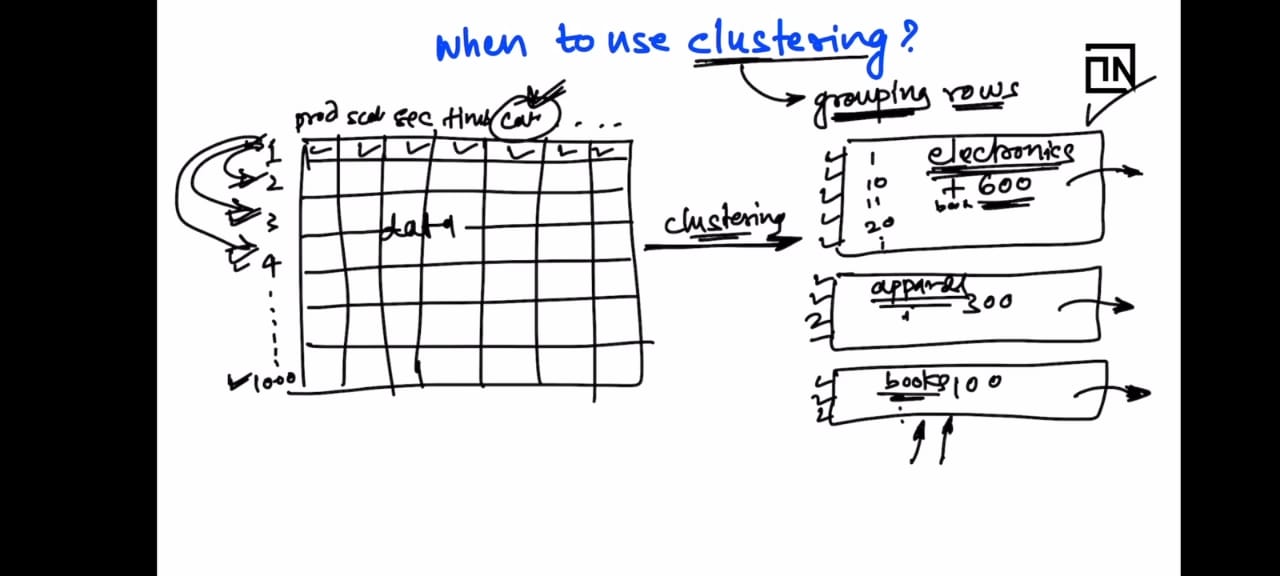 when to use clustering?
grouping rows
prod scat sec time cat . . .
1
2
3
4
1000
data
clustering
1 electronics
10 + 600
11 book
20
apparel 300
books 100